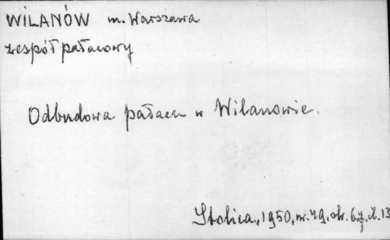 WILANÓW m. Warszawa
zespół pałacowy
Odbudowa pałacu w Wilanowie.
Stolica, 1950, nr. 49, str. 6, il. 13